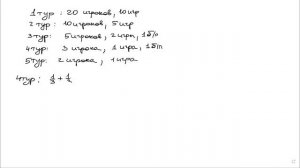 1 тур : 20 игроков, 10 игр
2 тур : 10 игроков, 5 игр
3 тур : 5 игроков, 2 игры, 1 б/п
4 тур : 3 игрока, 1 игра, 1 б/п
5 тур : 2 игрока, 1 игра
4 тур : 1/3 + 1/2